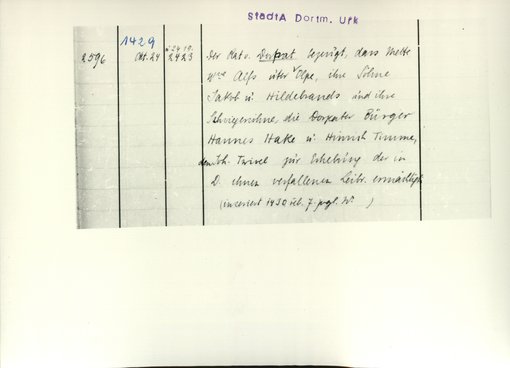 StadtA Dortm. Urk
2596
1429
Okt. 24
2423
Der Rat v. Dorpat bezeugt, dass Mette
Wwe Alfs üter Olpe, ihre Söhne
Jakob u. Hildebrands und ihre
Schwiegersöhne, die Dorpater Bürger
Hannes Hake u. Hinrich Timme,
den Joh. Twivel zur Erhebung der in
D. ihnen verfallenen Leibr. ermächtigt
(inseriert 1430 feb. 7. vgl. Nr. )